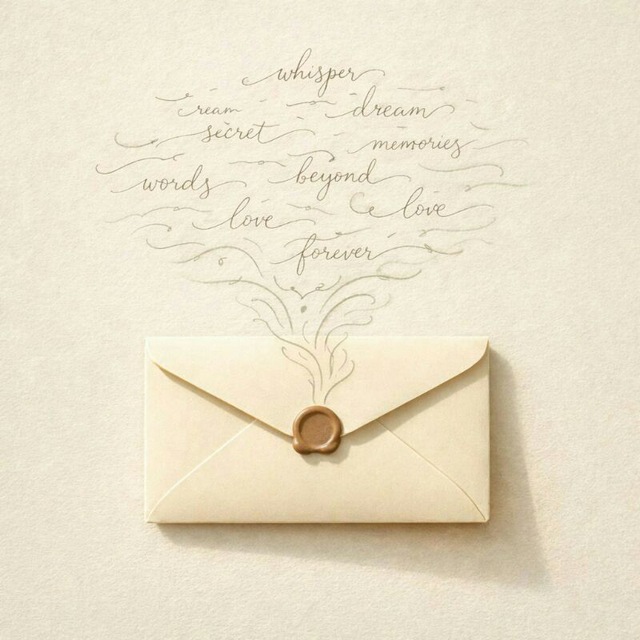 whisper
ream dream
secret memories
words beyond
love love
forever